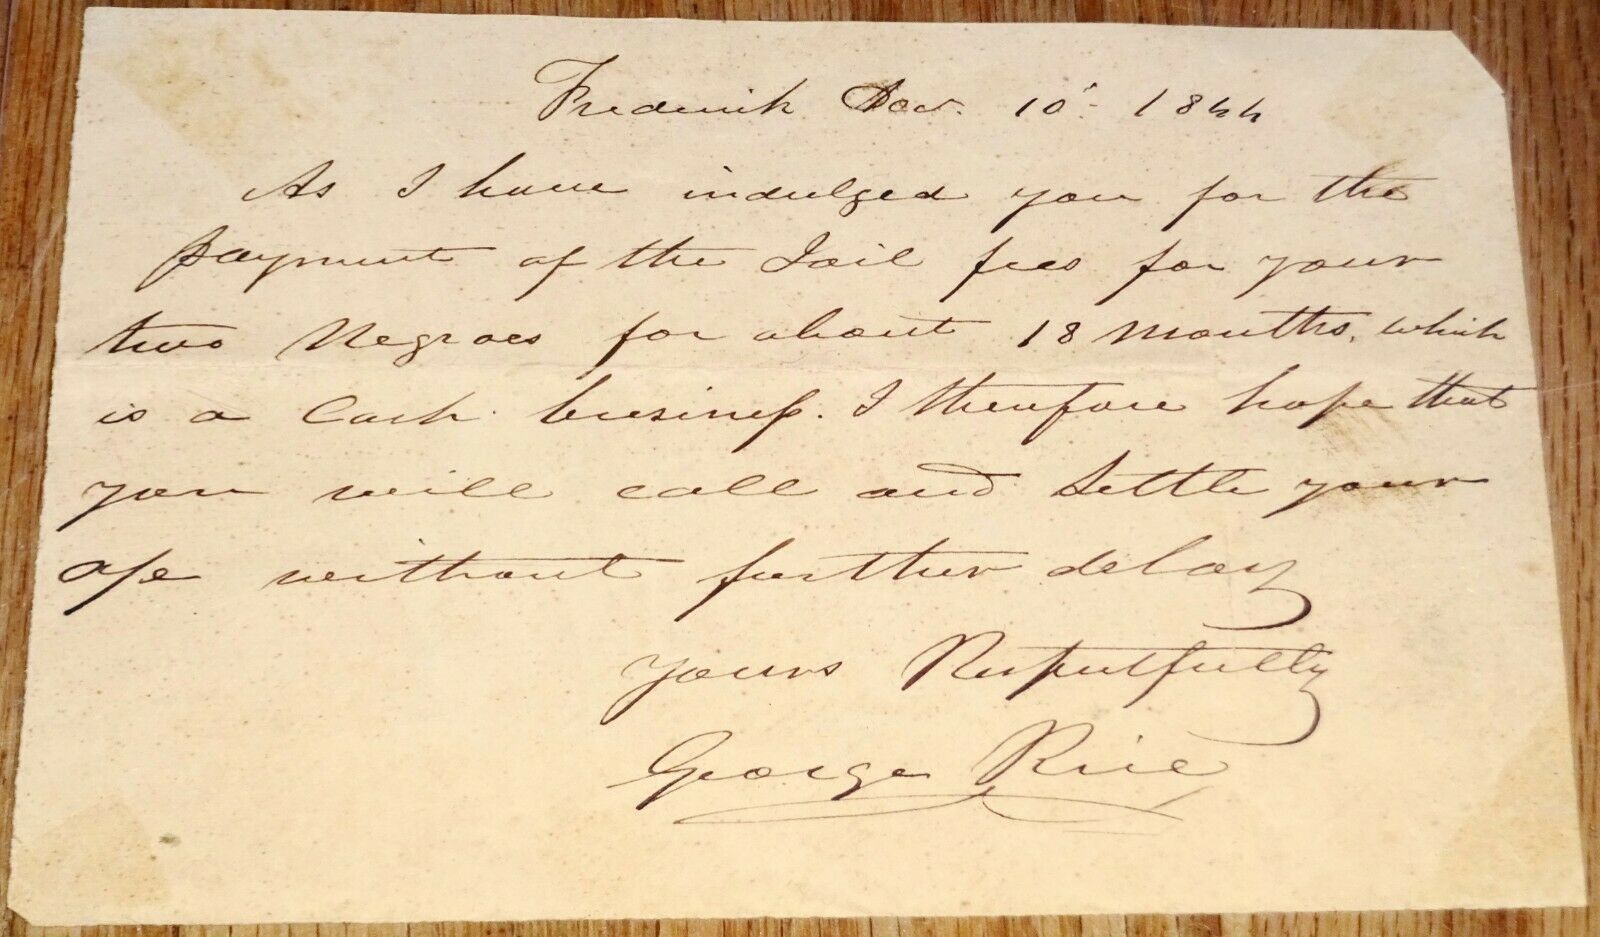 Frederick Nov. 10th 1844
As I have indulged you for the
payment of the Jail fees for your
two Negroes for about 18 Months, which
is a Cash business. I therefore hope that
you will call and settle your
a/c without further delay
yours Respectfully
George Rice